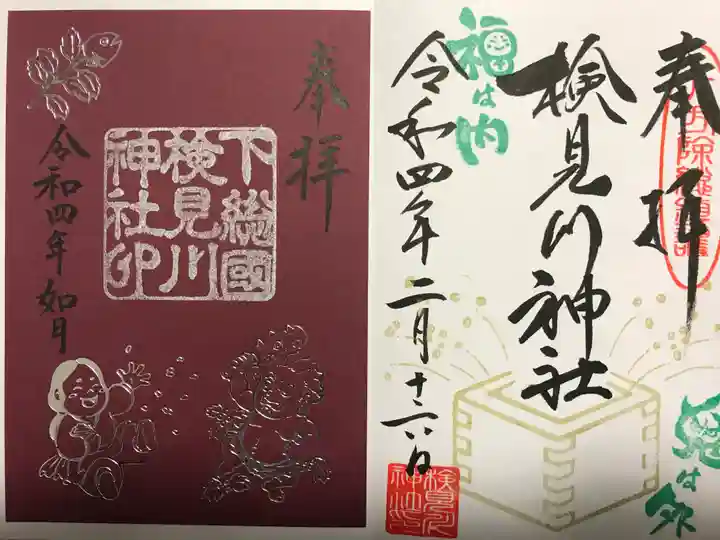 奉拝
下総國
検見川
神社印
令和四年如月
奉拝
検見川神社
福は内
令和四年二月十六日
鬼は外
検見川
神社印